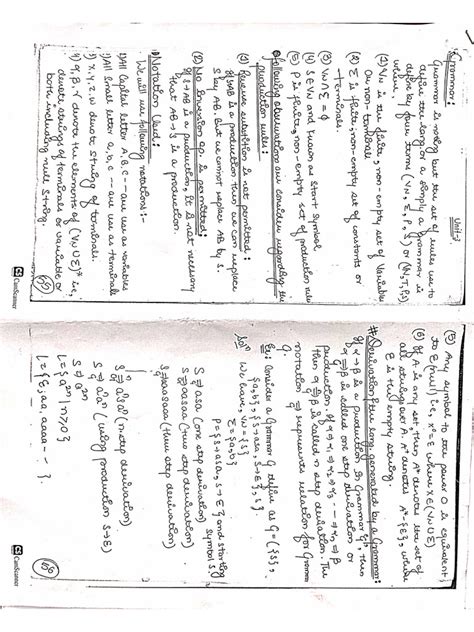 Unit-2
Grammar:
Grammar is nothing but the set of rules use to
define the lang. or a simply a grammar is
define by four tuple (VN, Σ, P, S) or (N, T, P, S)
where,
(1) VN is the finite, non-empty set of Variable
or non-terminal.
(2) Σ is finite, non-empty set of constants or
terminals.
(3) VN ∩ Σ = ϕ
(4) S ∈ VN and known as start symbol
(5) P is finite, non-empty set of production rule
Following observations are consider regarding the
production rules:
(1) Reverse substitution is not permitted:
if S→AB is a production then we can replace
S by AB but we cannot replace AB by S.
(2) No Inversion op. is permitted:
if S→AB is a production, it is not necessary
that AB→S is a production.
Notation Used:
We will use following notations:-
1) All Capital letter A, B, C -- are use as variables
2) All small letter a, b, c -- are use as terminals
3) x, y, z, w denote string of terminal.
4) α, β, γ denote the elements of (VN ∪ Σ)* i.e,
denote strings of terminals or variable or
both including null string.
CamScanner
(5) Any symbol to the power 0 is equivalent
to ε (null) i.e, x⁰ = ε where x ∈ (VN ∪ Σ)
(6) If A is any set, then A* denotes the set of
all string over A. A⁺ denotes A* - {ε}, where
ε is the empty string.
# Derivation & the lang generated by a Grammar:
If α→β is a production in Grammar 'G', then
α ⇒ β is called one step derivation or
production. If α ⇒ α1 ⇒ α2 ⇒ α3 -- ⇒ αn ⇒ β
then α ⇒ β is called n step derivation. The
notation ⇒ represents relation for Grammar
G.
Ex: Consider a Grammar G define as G = ({S},
{a, b}, {S→aSa, S→ε}, S).
Solⁿ We have, VN = {S}
Σ = {a, b}
P = {S→aSa, S→ε} and starting
Symbol S.
S ⇒ aSa (one step derivation)
S ⇒ aaSaa (two step derivation)
S ⇒ aaaSaaa (three step derivation)
S ⇒ aⁿSaⁿ (n step derivation)
S ⇒ aⁿaⁿ (using production S→ε)
S ⇒ a²ⁿ
L = {a²ⁿ | n≥0}
L = {ε, aa, aaaa -- }.
CamScanner